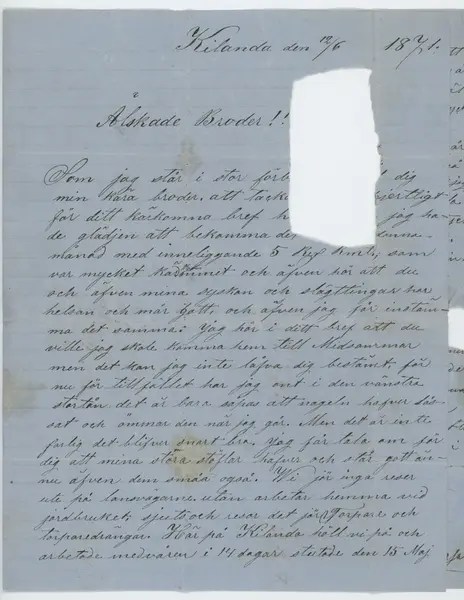 Kilanda den 12/6 1871.
Älskade Broder!!
Som jag står i stor förb dig
min kära broder, att tacka hjertligt
för ditt kärkomna bref h jag ha-
de glädjen att bekomma de denna
månad med inneliggande 5 Rdr Rmt, som
var mycket kärkommet och äfven hör att du
och äfven mina syskon och slägttingar har
helsan och mår Gott, och äfven jag får instäm-
ma det samma: Jag hör i ditt bref att du
ville jag skole komma hem till Midsommar
men det kan jag inte låfva dig bestämt, för
nu för tillfället har jag ont i den vänstra
stortån det är bara så att nageln hafver
sat och ömmar den när jag går. Men det är inte
farlig det blifver snart bra. Jag får tala om för
dig att mina stora stöflar hafver och står gott än-
nu äfven dem småa också. Wi jör inga reser
ute på landsvägarne utan arbetar hemma vid
jordbruket, och reser det jör Torpare och
torparedrängar. Här på Kilanda höll vi på och
arbetade medvåren i 14 dagar slutade den 15 Maj